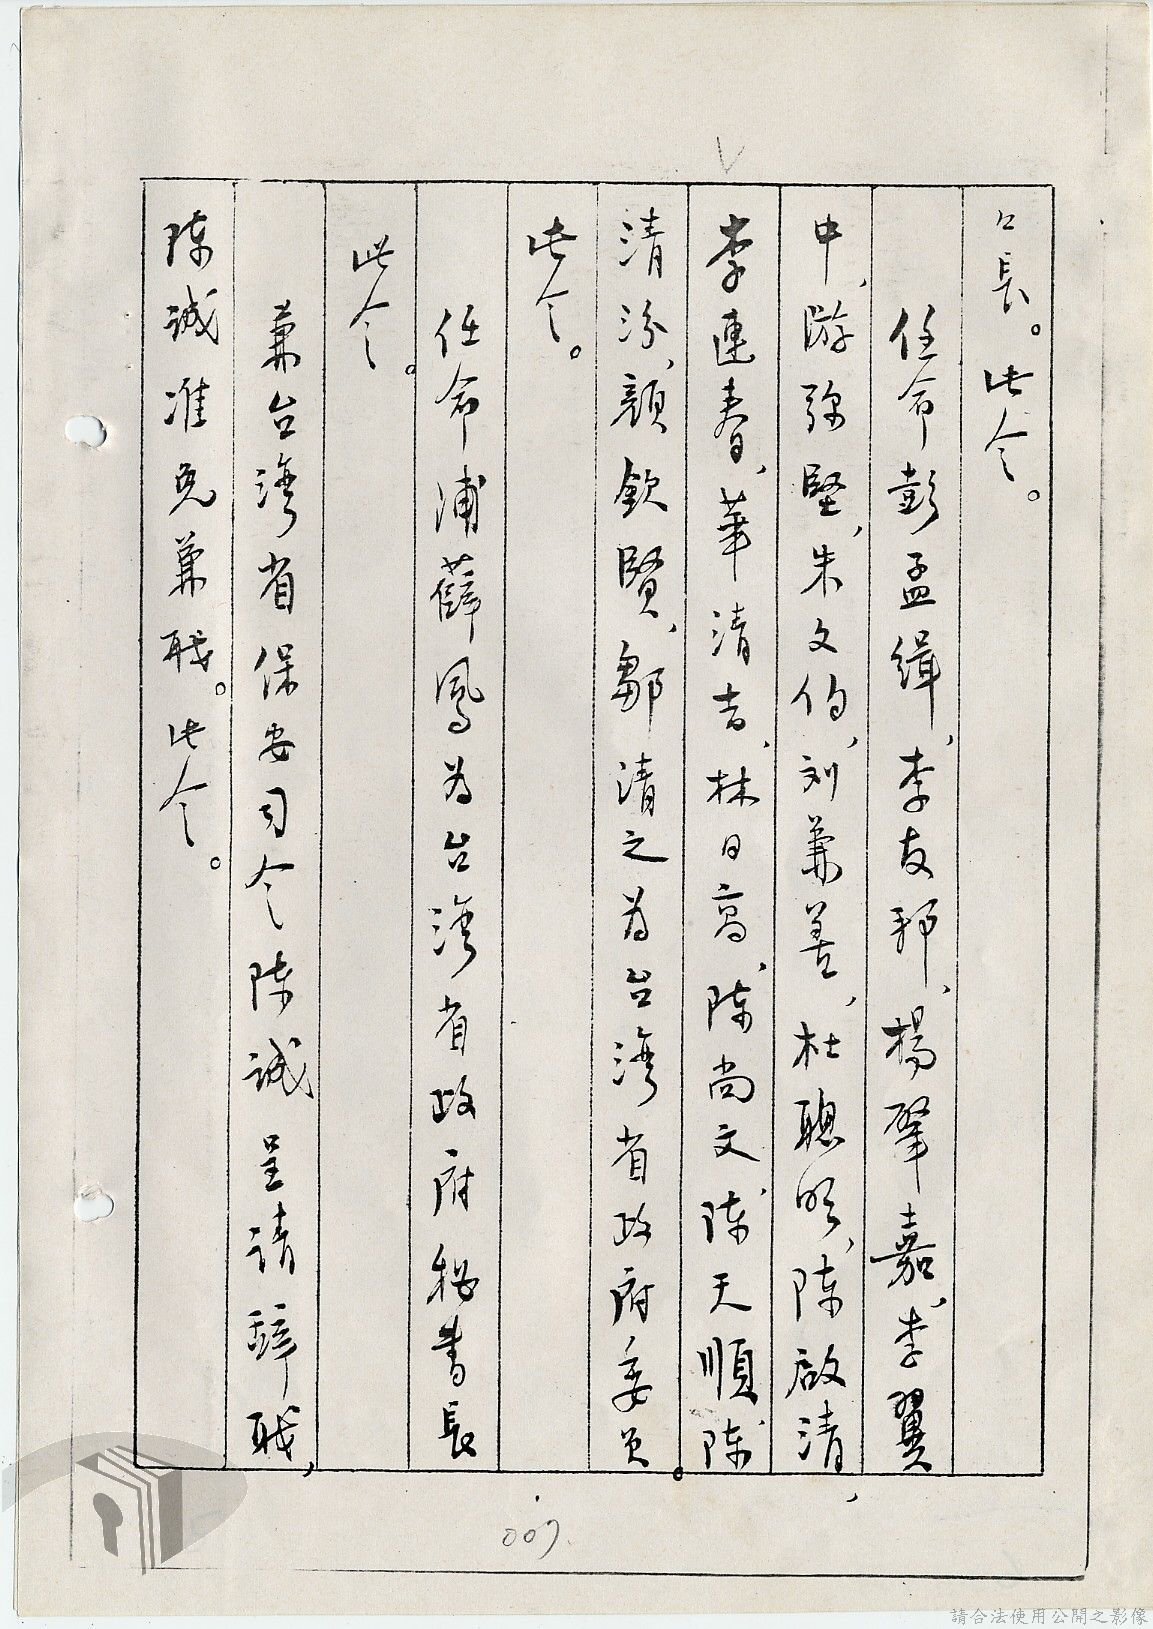 長。此令。
任命彭孟緝、李友邦、楊肇嘉、李翼
中、游弥堅、朱文伯、刘兼善、杜聰明、陳啟清、
李連春、華清吉、林日高、陳尚文、陳天順、陳
清汾、顏欽賢、鄒清之為台湾省政府委員。
此令。
任命浦薛鳳為台湾省政府秘書長
此令。
兼台湾省保安司令陳誠呈請辞職,
陳誠准免兼職。此令。
007
請合法使用公開之影像